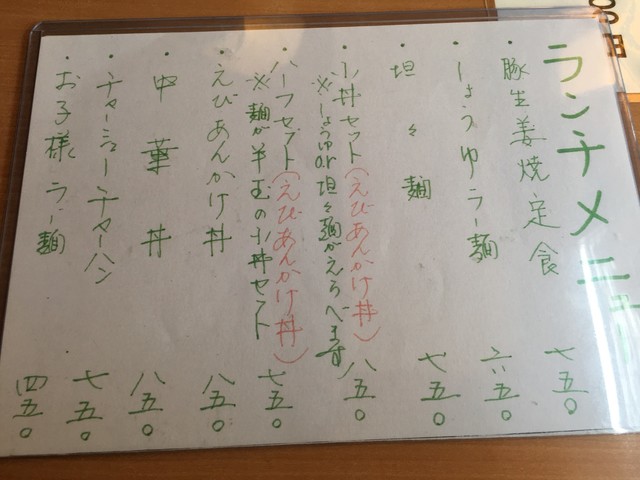 ランチメニュー
・豚生姜焼定食 七五〇
・しょうゆラー麺 六五〇
・坦々麺 七五〇
・小丼セット(えびあんかけ丼) 八五〇
※しょうゆor坦々麺がえらべます
・ハーフセット(えびあんかけ丼) 七五〇
※麺が半玉の小丼セット
・えびあんかけ丼 八五〇
・中華丼 八五〇
・チャーシューチャーハン 七五〇
・お子様ラー麺 四五〇
00円